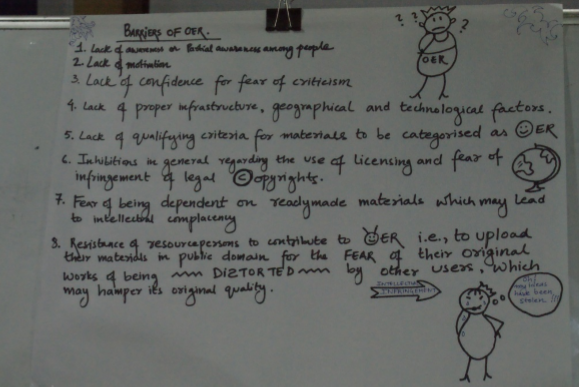 BARRIERS OF OER.
1. Lack of awareness or Partial awareness among people
2. Lack of motivation
3. Lack of confidence for fear of criticism
4. Lack of proper infrastructure, geographical and technological factors.
5. Lack of qualifying criteria for materials to be categorised as OER
6. Inhibitions in general regarding the use of licensing and fear of
infringement of legal ©opyrights.
7. Fear of being dependent on readymade materials which may lead
to intellectual complacency
8. Resistance of resourcepersons to contribute to OER i.e., to upload
their materials in public domain for the FEAR of their original
works of being DISTORTED by other users, which
may hamper its original quality.
? ? ?
OER
INTELLECTUAL
INFRINGEMENT
Oh!
my ideas
have been
stolen !!!